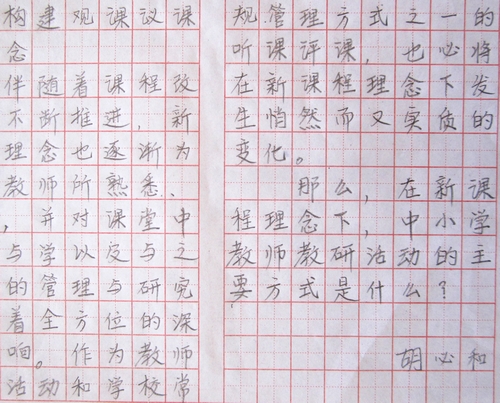 构建观课议课
念
伴随着课程改
不断推进，新
理念也逐渐为
教师所熟悉、
，并对课堂中
与学以及与之
的管理与研究
着全方位的深
响。作为教师
活动和学校常
规管理方式之一的
听课评课，也必将
在新课程理念下发
生悄然而又实质的
变化。
那么，在新课
程理念下，中小学
教师教研活动的主
要方式是什么？
胡心和